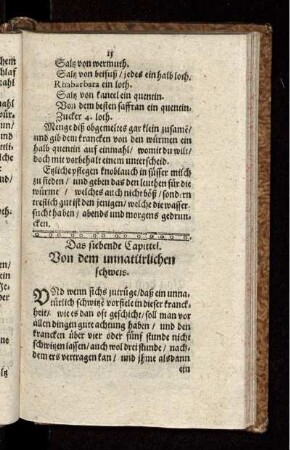 15
Saltz von wermuth.
Saltz von beifuß / jedes ein halb loth.
Rhabarbara ein loth.
Saltz von kaneel ein quentin.
Von dem besten saffran ein quentin.
Zucker 4. loth.
Menge diß obgemeltes gar klein zusamē /
und gib dem krancken von den würmen ein
halb quentin auf einmahl / womit du wilt /
doch mit vorbehalt einem unterscheid.
Etzliche pflegen knoblauch in süsser milch
zu sieden / und geben das den leuthen für die
würme / welches auch nicht böß / sondern
treflich gut ist den jenigen / welche die wasser-
sucht haben / abends und morgens getrun-
cken.
Das siebende Capittel.
Von dem unnatürlichen
schweis.
UNd wenn sichs zutrüge / daß ein unna-
türlich schwitzē vorfiele in dieser kranck-
heit / wie es dan oft geschicht / soll man vor
allen dingen gute achtung haben / und den
krancken über vier oder fünf stunde nicht
schwitzen lassen / auch wol drei stunde / nach-
dem ers vertragen kan / und jhme alsdann
ein